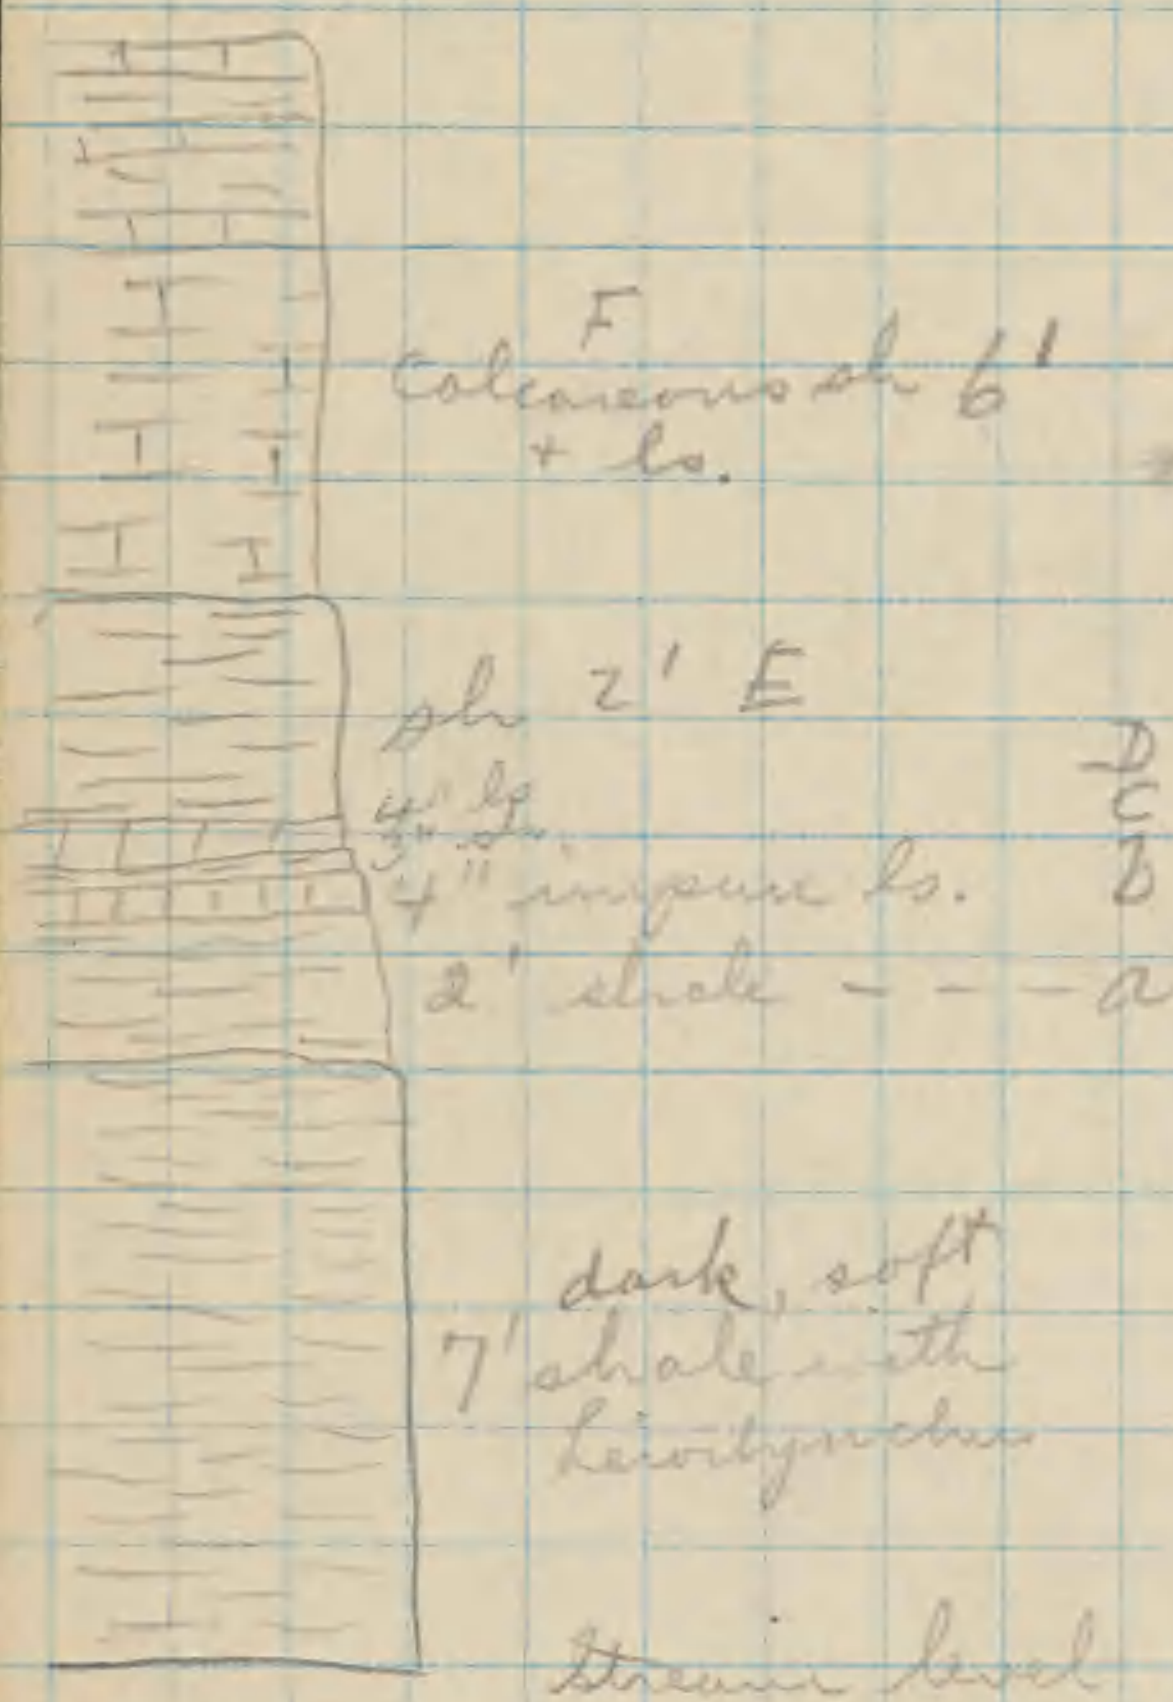 F
Calcareous sh 6'
+ ls.
sh 2' E
D
4" ls C
3"
4" impure ls. b
2' shale - - - a
dark, soft
7' shale with
Leiorhynchus
Stream level